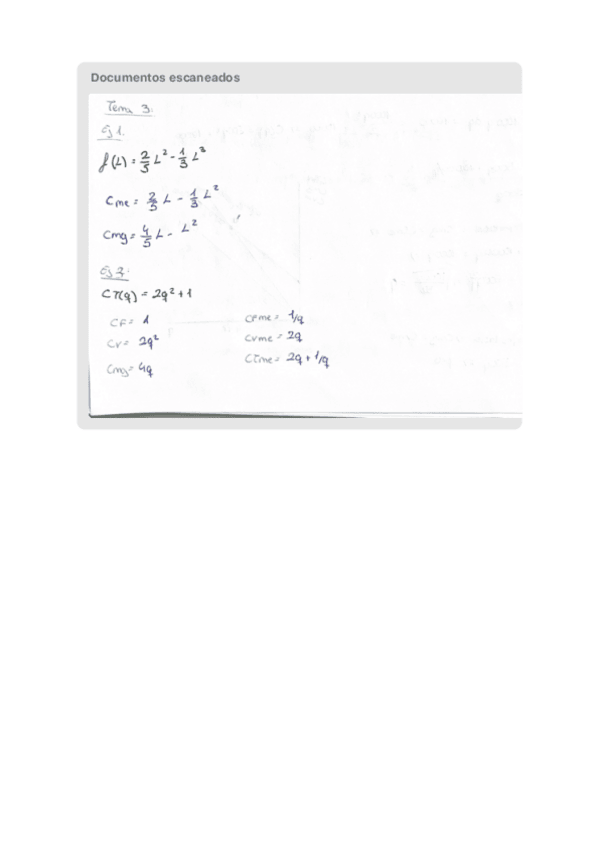 Documentos escaneados
Tema 3.
Ej 1.
f(L) = 2/5 L² - 1/3 L³
Cme = 2/5 L - 1/3 L²
Cmg = 4/5 L - L²
Ej 2.
CT(q) = 2q² + 1
CF = 1
CV = 2q²
Cmg = 4q
CFme = 1/q
CVme = 2q
CTme = 2q + 1/q